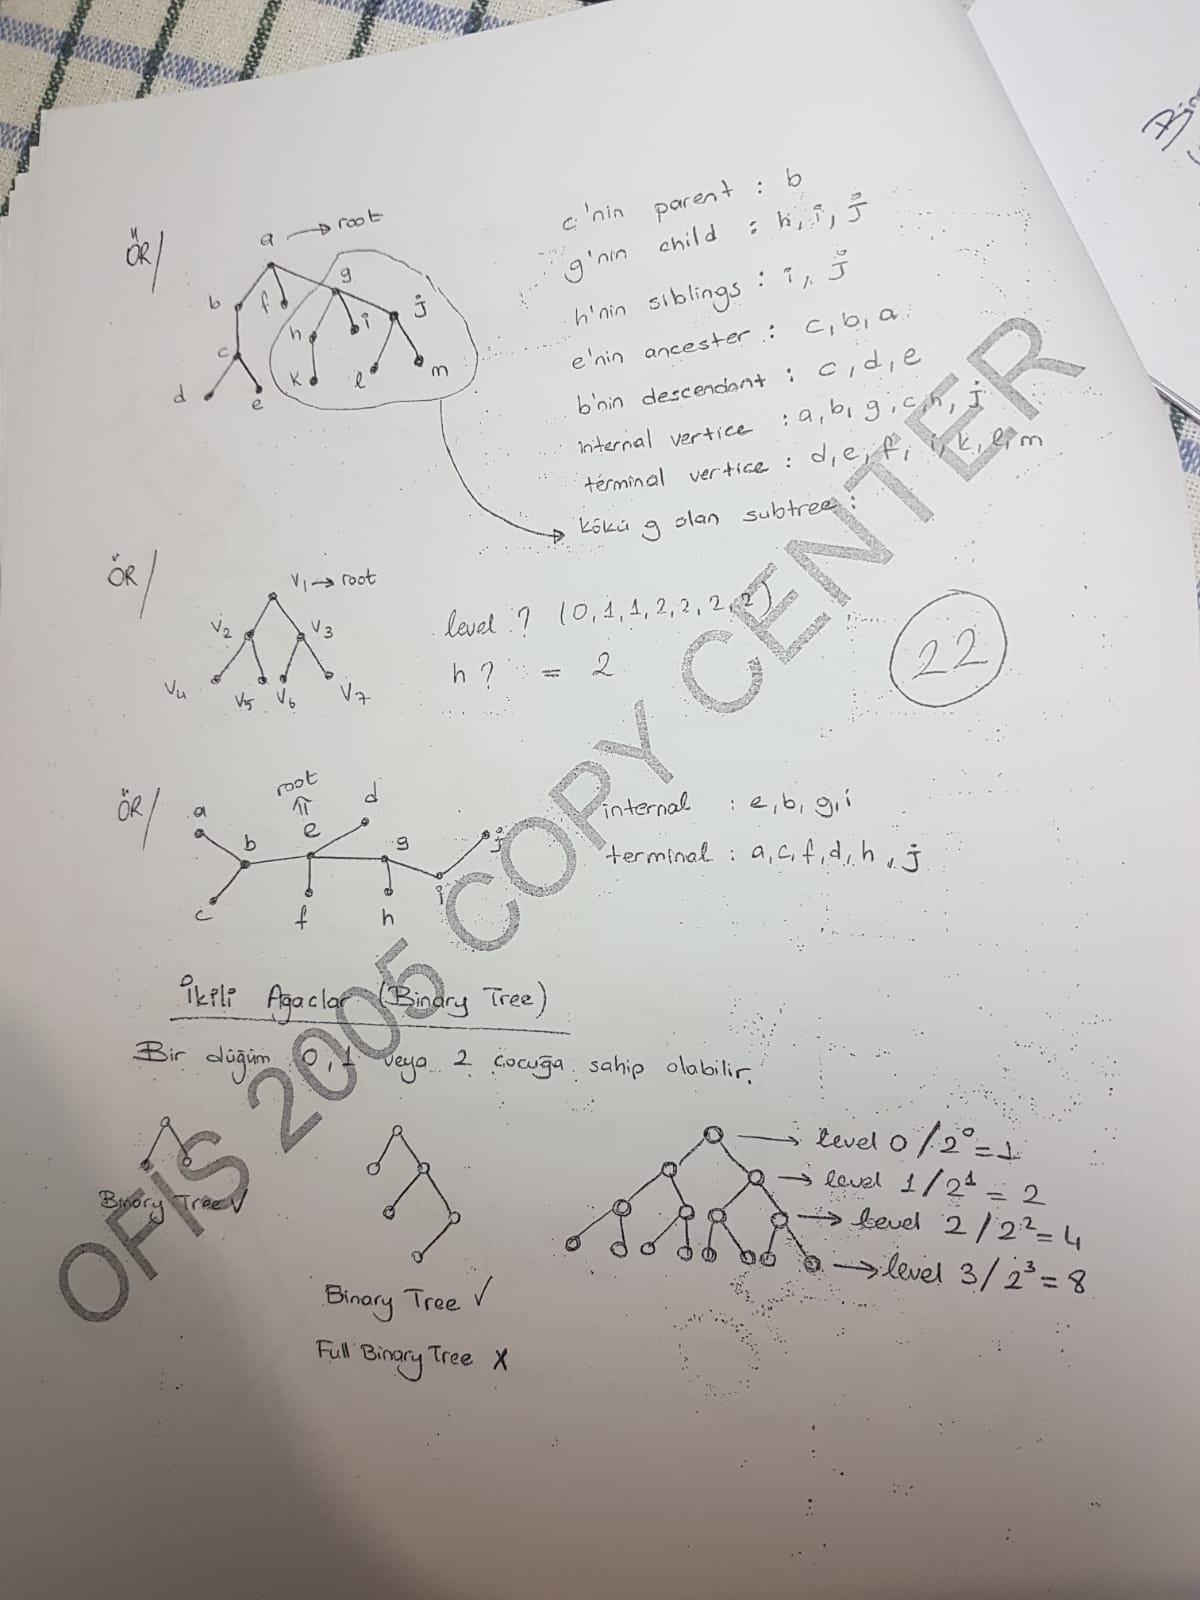 ÖR/
a → root
b
f
g
h
i
j
c
d
e
k
l
m
c'nin parent : b
g'nin child : h, i, j
h'nin siblings : i, j
e'nin ancester : c, b, a
b'nin descendant : c, d, e
internal vertice : a, b, g, c, h, j
terminal vertice : d, e, f, i, k, l, m
kökü g olan subtree :
ÖR/
V1 → root
V2
V3
V4
V5
V6
V7
level ? (0, 1, 1, 2, 2, 2, 2)
h ? = 2
22
ÖR/
root
a
b
e
d
g
j
c
f
h
i
internal : e, b, g, i
terminal : a, c, f, d, h, j
İkili Agaclar (Binary Tree)
Bir düğüm 0, 1 veya 2 çocuğa sahip olabilir.
Binary Tree ✓
Binary Tree ✓
Full Binary Tree X
→ level 0 / 2⁰ = 1
→ level 1 / 2¹ = 2
→ level 2 / 2² = 4
→ level 3 / 2³ = 8
OFİS 2005 COPY CENTER